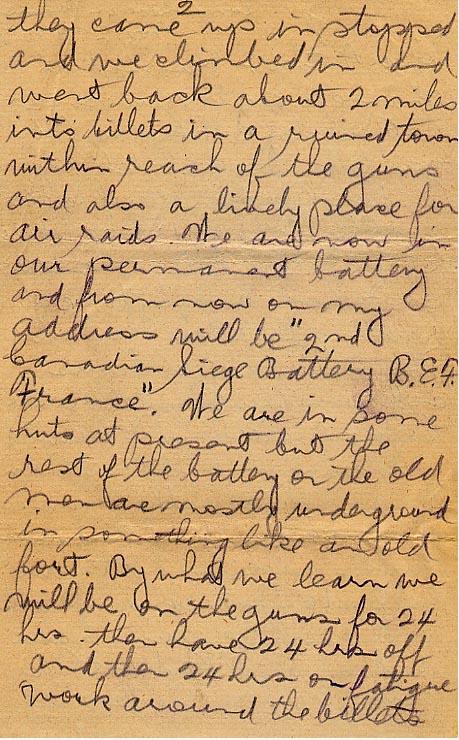 2
they came up in stopped
and we climbed in and
went back about 2 miles
into billets in a ruined town
within reach of the guns
and also a lively place for
air raids. We are now in
our permanent battery
and from now on my
address will be "2nd
Canadian Siege Battery B.E.F.
France". We are in some
huts at present but the
rest of the battery or the old
men are mostly underground
in something like an old
fort. By what we learn we
will be on the guns for 24
hrs. then have 24 hrs off
and then 24 hrs on fatigue
work around the billets